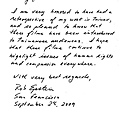 I am very honored to have had a
retrospective of my work in Taiwan,
and so pleased to know that
these films have been introduced
to Taiwanese audiences. I hope
that these films continue to
highlight issues of human rights
and compassion every where.
With very best regards,
Rob Epstein
San Francisco
September 29, 2009